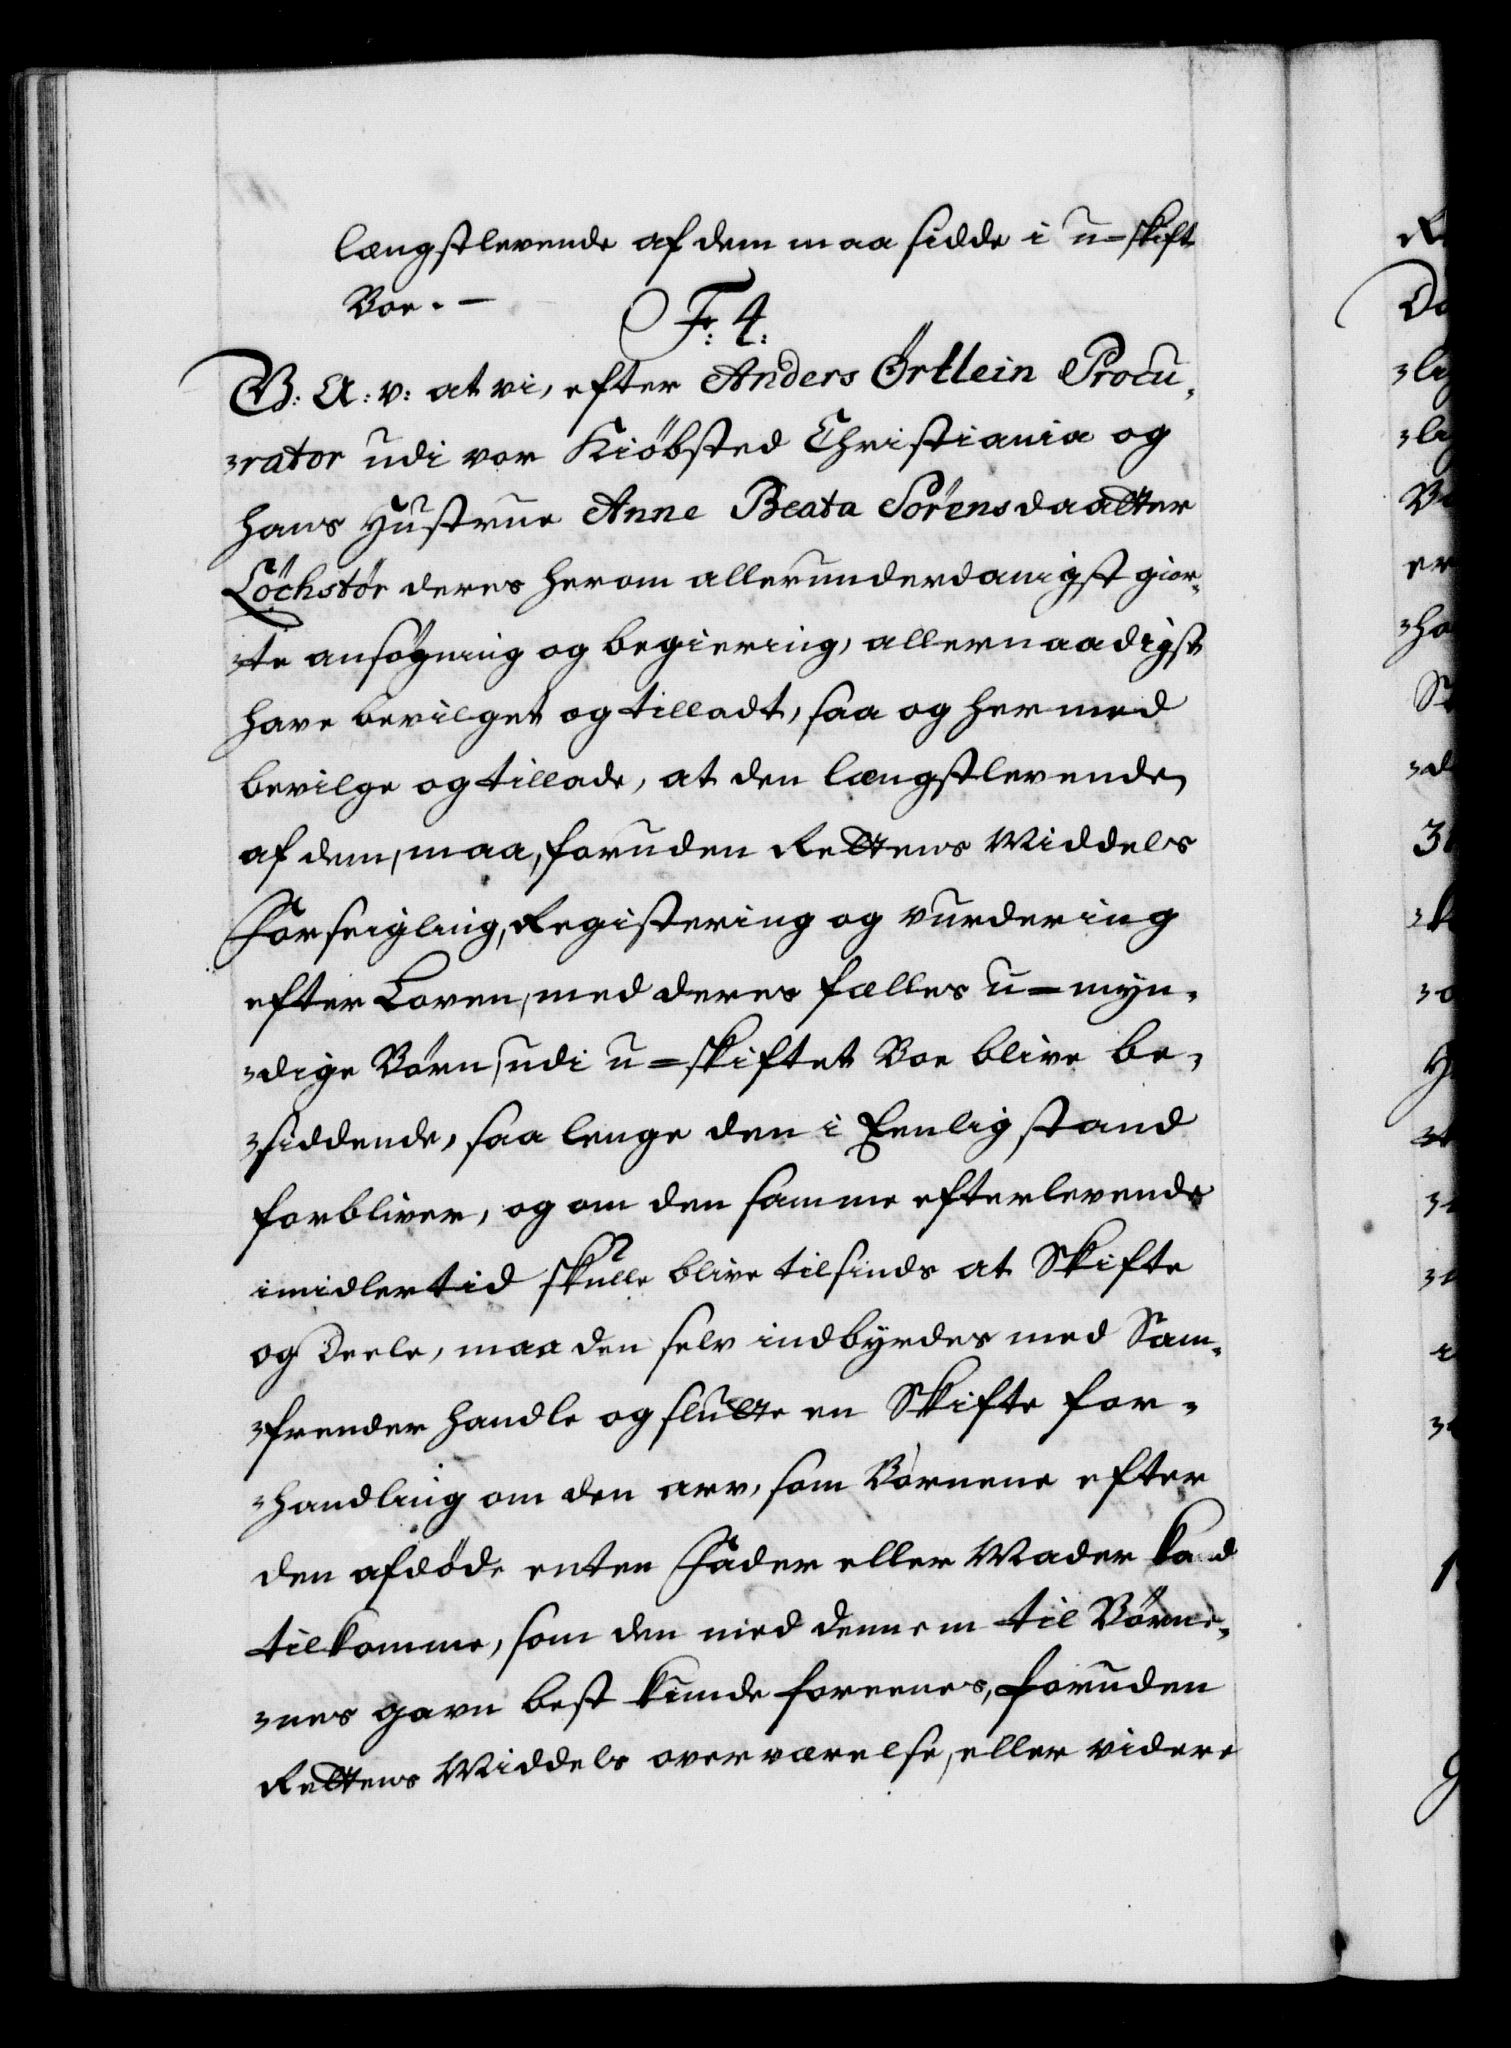 længstlevende af dem maa sidde i u=skift
Boe. –
Fr: 4:
G: A: v: at vi, efter Anders Örtlein Procu-
-rator udi vor Kiöbsted Christiania og
hans Hustrue Anne Beata Sörensdaatter
Löchstör deres herom allerunderdanigst gior-
-te ansögning og begiering, allernaadigst
have bevilget og tilladt, saa og hermed
bevilge og tillade, at den længstlevende
af dem, maa, foruden Rettens Middels
Forseigling, Registering og vurdering
efter Loven, med deres fælles u=myn-
-dige Börn, udi u=skiftet Boe blive be-
-siddende, saa lenge den i Eenlig stand
forbliver, og om den samme efterlevende
imidlertid skulle blive tilsinds at Skifte
og Deele, maa den selv indbyrdes med Sam-
-frender handle og slutte en Skifte for-
-handling om den arv, som Börnene efter
den afdöde enten Fader eller Moder kand
tilkomme, som den med dennem til Börne-
-nes gavn best kunde foreenes, foruden
Rettens Middels overværelse, eller videre